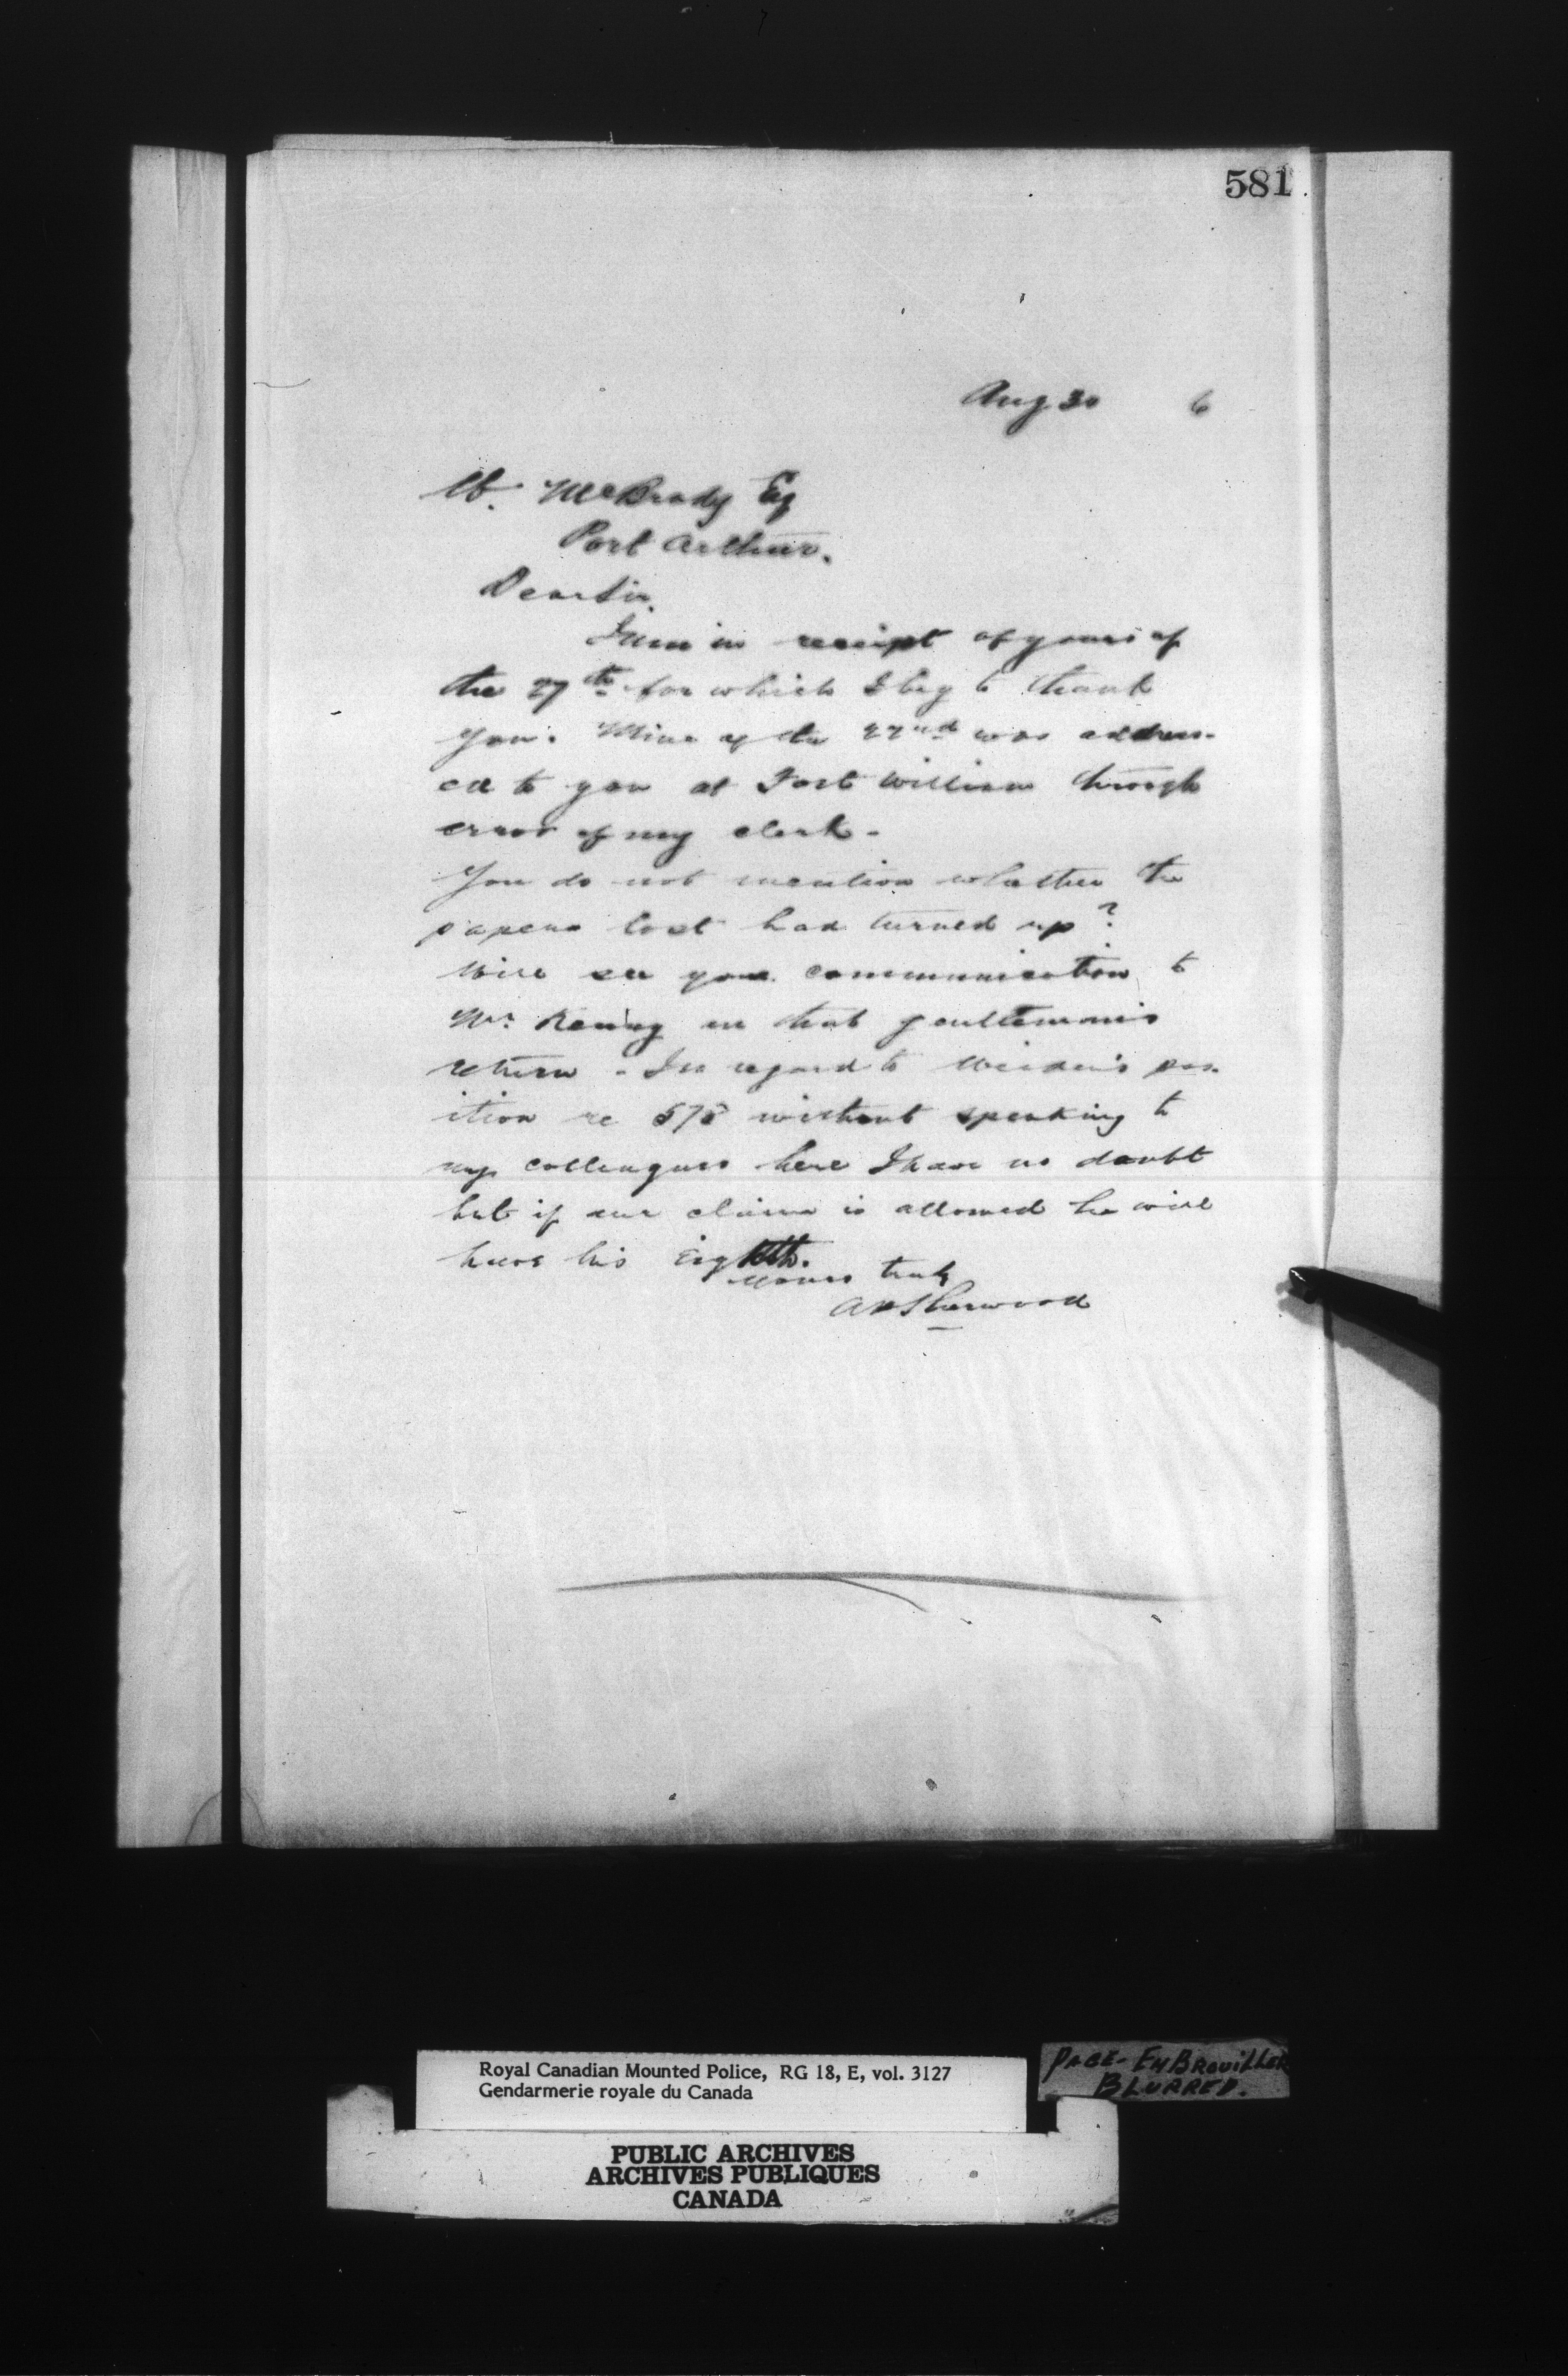 581
Aug 30 6
W. McBrady Esq
Port Arthur.
Dear Sir,
I am in receipt of yours of
the 27th for which I beg to thank
you. Mine of the 22nd was address-
ed to you at Fort William through
error of my clerk -
You do not mention whether the
papers lost had turned up?
Will see your communication to
Mr. on that gentleman's
return - In regard to pos-
ition re 578 without speaking to
my colleagues here I have no doubt
but if our claim is allowed he will
have his Eighth.
Yours truly
A P Sherwood
Royal Canadian Mounted Police, RG 18, E, vol. 3127
Gendarmerie royale du Canada
PAGE - EMBROUILLER
BLURRED.
PUBLIC ARCHIVES
ARCHIVES PUBLIQUES
CANADA